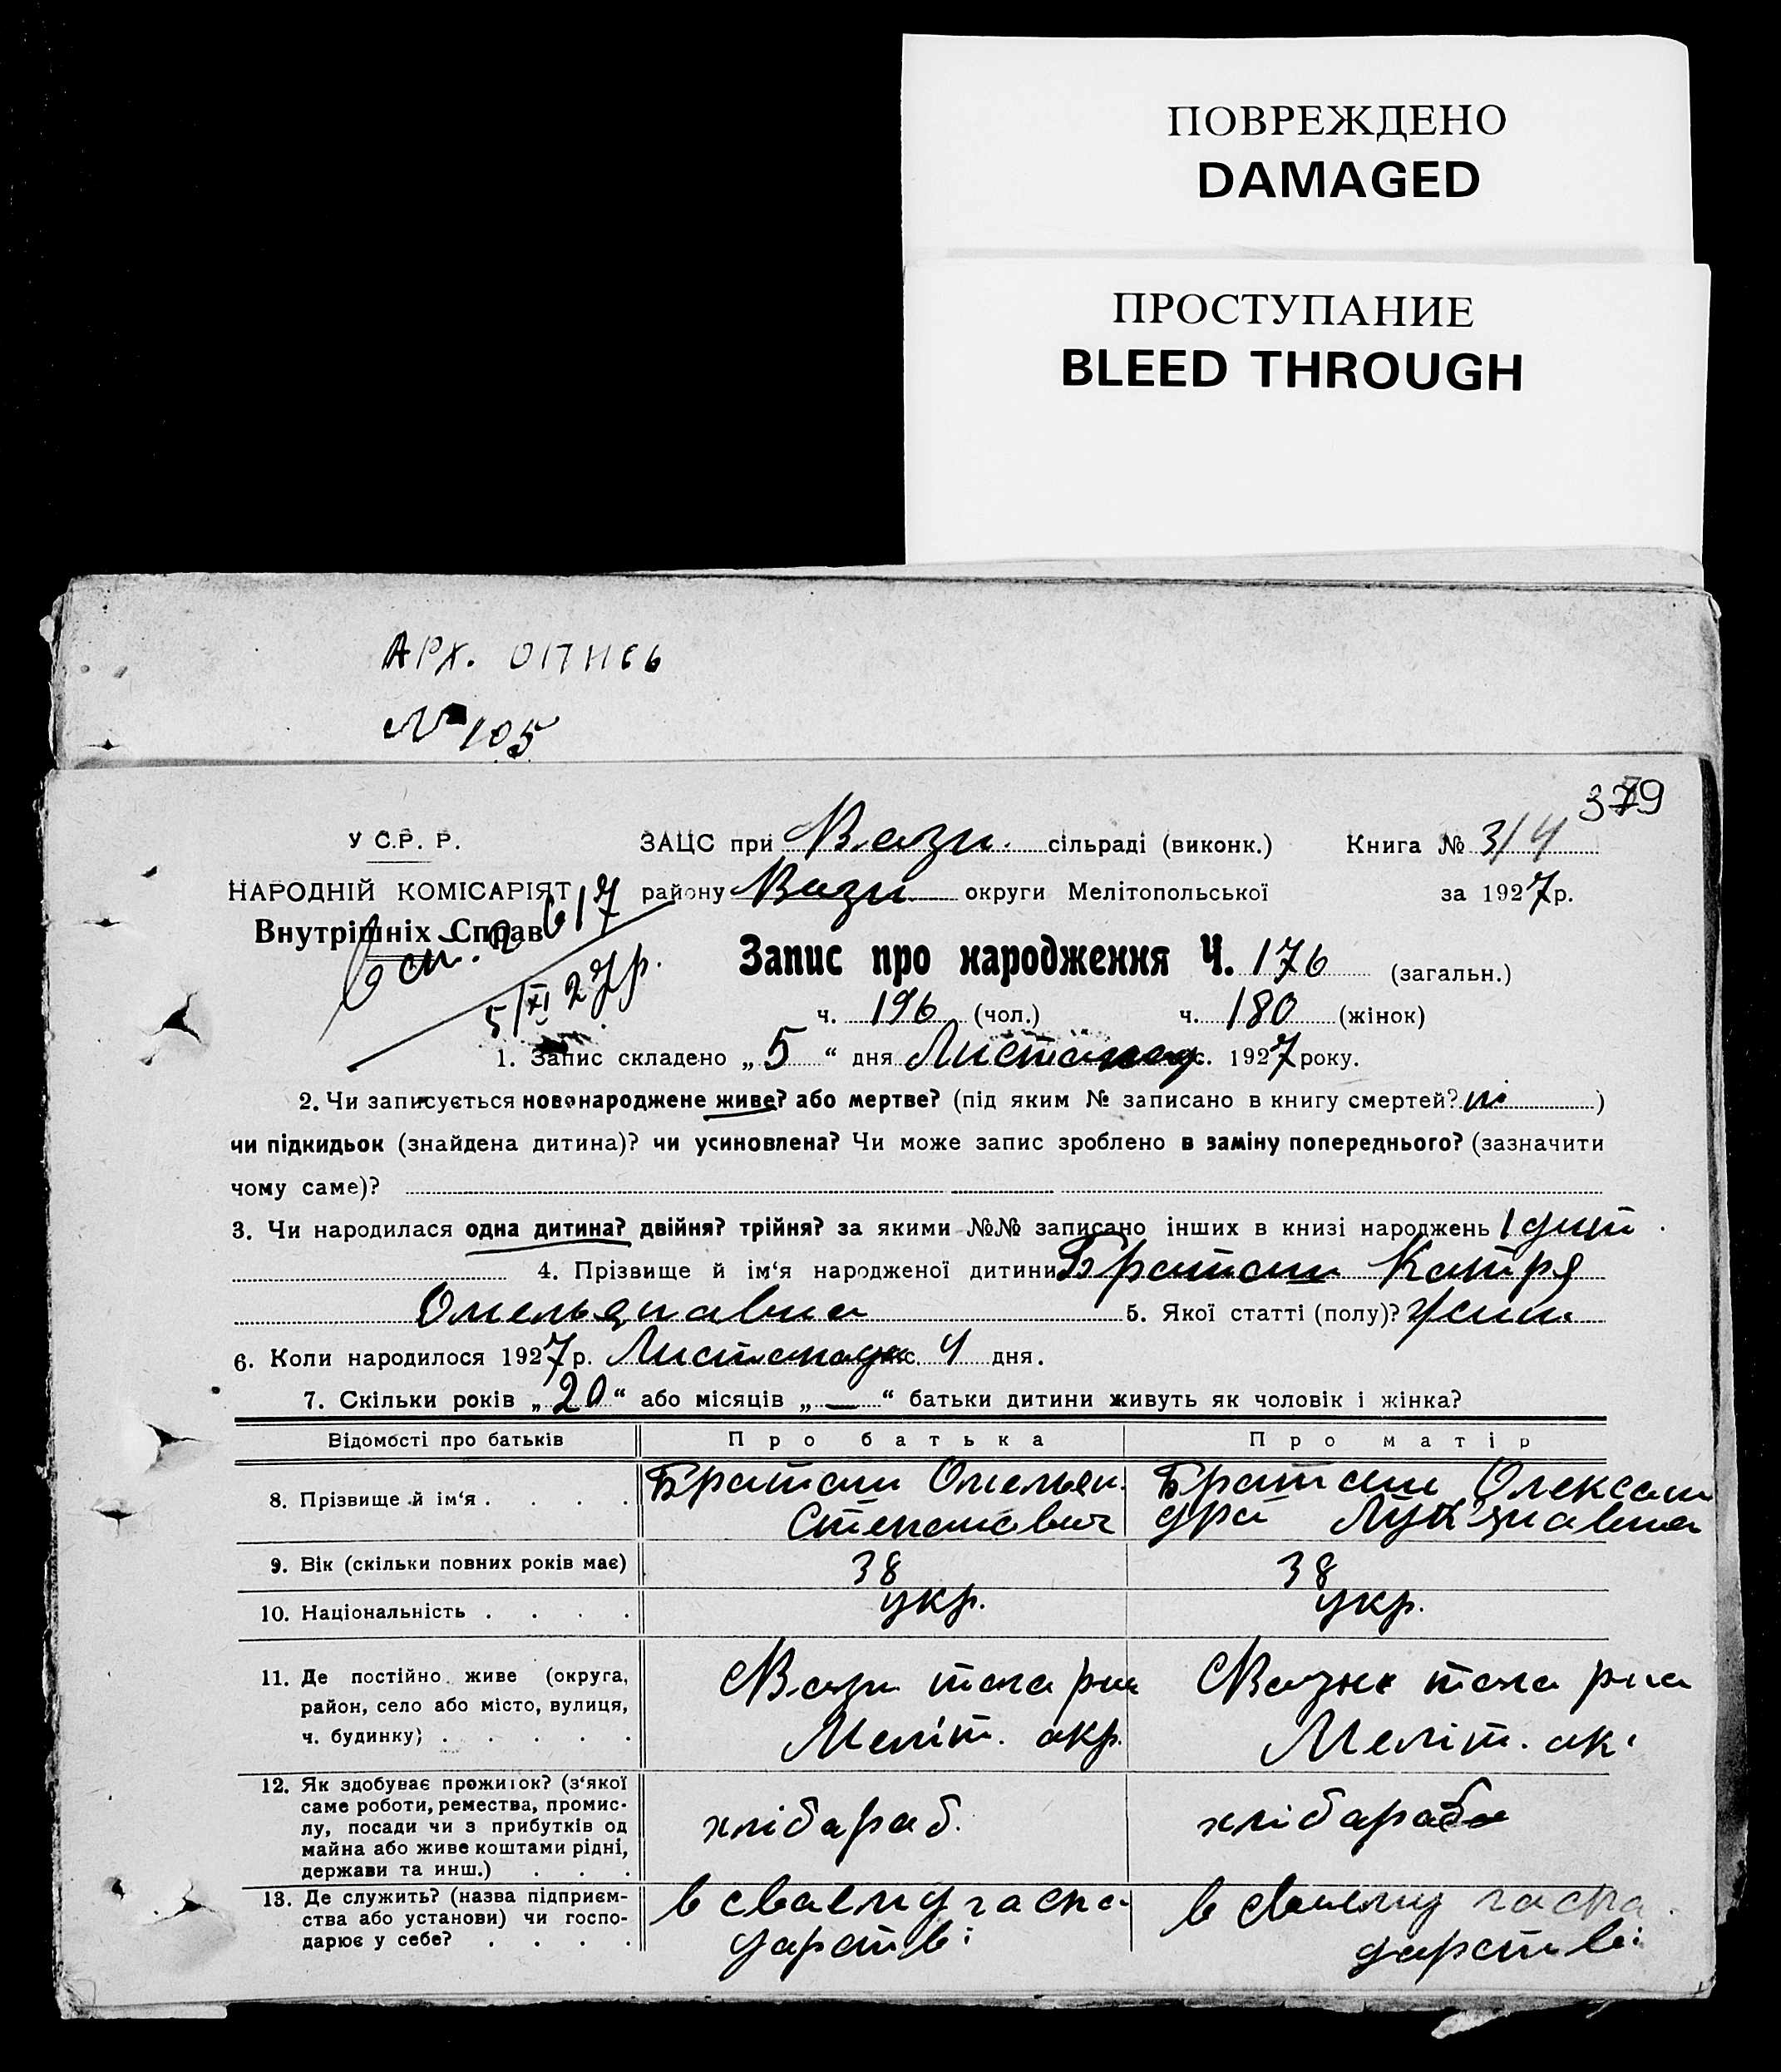 ПОВРЕЖДЕНО
DAMAGED
ПРОСТУПАНИЕ
BLEED THROUGH
АРХ.
№ 105
379
У С.Р. Р.
ЗАЦС при сільраді (виконк.) Книга № 3/4
НАРОДНІЙ КОМІСАРІЯТ району округи Мелітопольської за 1927 р.
Внутрішніх Справ
5/XI 27 р.
Запис про народження Ч. 176 (загальн.)
ч. 196 (чол.) ч. 180 (жінок)
1. Запис складено „ 5 “ дня Листопад с. 1927 року.
2. Чи записується новонароджене живе? або мертве? (під яким № записано в книгу смертей? ні )
чи підкидьок (знайдена дитина)? чи усиновлена? Чи може запис зроблено в заміну попереднього? (зазначити
чому саме)?
3. Чи народилася одна дитина? двійня? трійня? за якими №№ записано інших в книзі народжень 1 дит.
4. Прізвище й ім‘я народженої дитини Браташ Катря
Омельянавна 5. Якої статті (полу)? жин.
6. Коли народилося 1927 р. Листопад с. 4 дня.
7. Скільки років „ 20 “ або місяців „ — “ батьки дитини живуть як чоловік і жінка?
Відомості про батьків Про батька Про матір
8. Прізвище й ім‘я . . . . Браташ Омельян. Степанович Браташ Олександра Лук'янавна
9. Вік (скільки повних років має) 38 38
10. Національність . . . . укр. укр.
11. Де постійно живе (округа, район, село або місто, вулиця, ч. будинку) . . . . . тога рна Меліт. акр. тога рна Меліт. ак.
12. Як здобуває прожиток? (з‘якої саме роботи, ремества, промислу, посади чи з прибутків од майна або живе коштами рідні, держави та инш.) . . . хлібараб. хлібараба
13. Де служить? (назва підприємства або установи) чи господарює у себе? . . . . в сваему гаспадарстві в сваему гаспадарстві